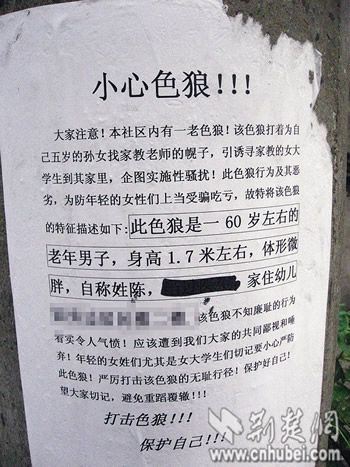 小心色狼!!!
大家注意！本社区内有一老色狼！该色狼打着为自
己五岁的孙女找家教老师的幌子，引诱寻家教的女大
学生到其家里，企图实施性骚扰！此色狼行为及其恶
劣，为防年轻的女姓们上当受骗吃亏，故特将该色狼
的特征描述如下：此色狼是一 60 岁左右的
老年男子，身高 1.7 米左右，体形微
胖，自称姓陈，家住幼儿
该色狼不知廉耻的行为
着实令人气愤！应该遭到我们大家的共同鄙视和唾
弃！年轻的女姓们尤其是女大学生们切记要小心严防
此色狼！严厉打击该色狼的无耻行径！保护好自己！
望大家切记，避免重蹈覆辙!!!
打击色狼!!!
保护自己!!!
荆楚网
www.cnhubei.com